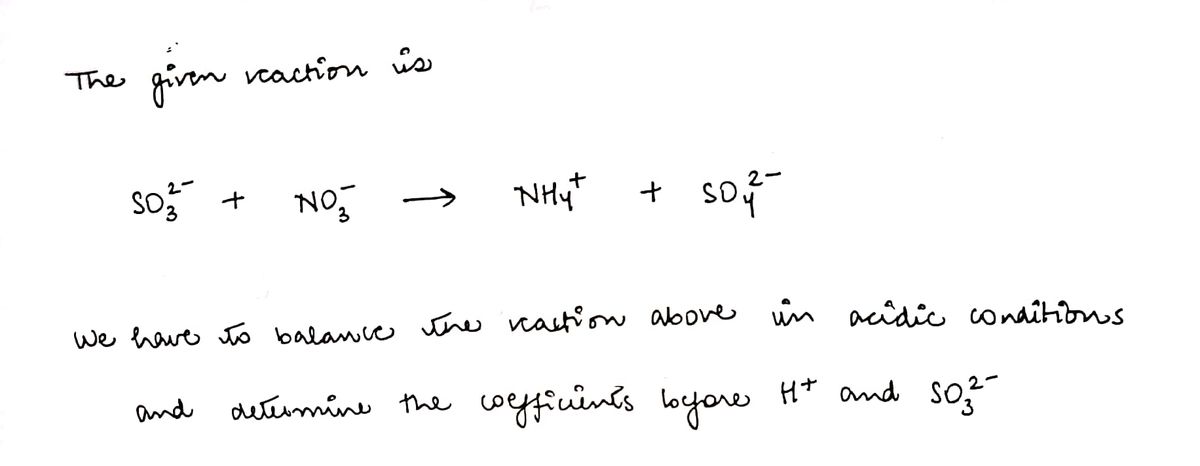 The given reaction is
SO₃²⁻ + NO₃⁻ → NH₄⁺ + SO₄²⁻
We have to balance the reaction above in acidic conditions
and determine the coefficients before H⁺ and SO₃²⁻